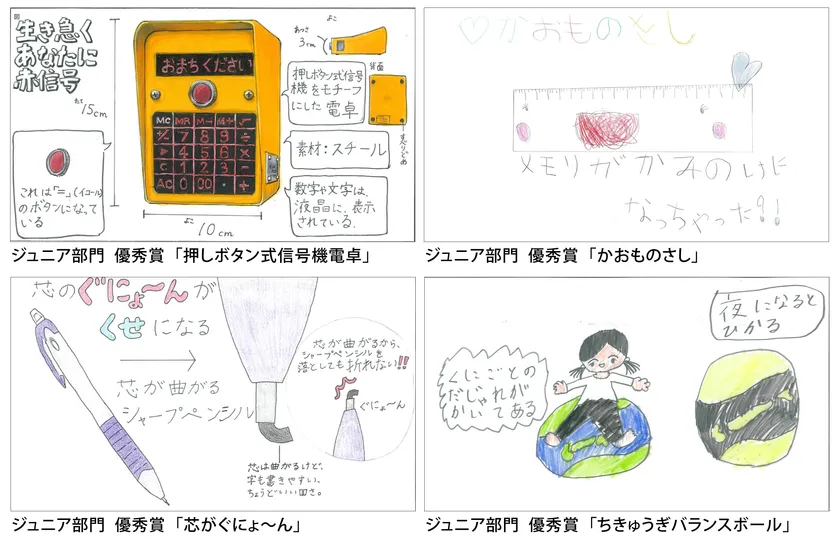 生き急ぐ
あなたに
赤信号
たて
15cm
おまちください
MC MR M- M+ √
+/- 7 8 9 ÷
▶ 4 5 6 ×
C 1 2 3 -
AC 0 00 . +
よこ
10cm
これは「=」(イコール)
のボタンになって
いる
よこ
あつさ
3cm
背面
すべりどめ
押しボタン式信号
機をモチーフ
にした 電卓
素材:スチール
数字や文字は、
液晶に、表示
されている.
ジュニア部門 優秀賞 「押しボタン式信号機電卓」
♡かおものさし
メモリがかみのけに
なっちゃった!!
ジュニア部門 優秀賞 「かおものさし」
芯のぐにょ〜んが
くせになる
芯が曲がる
シャープペンシル
芯が曲がるから、
シャープペンシルを
落としても折れない!!
ぐにょ〜ん
芯は曲がるけど、
字も書きやすい、
ちょうどいい固さ。
ジュニア部門 優秀賞 「芯がぐにょ〜ん」
くにごとの
だじゃれが
かいてある
夜になると
ひかる
ジュニア部門 優秀賞 「ちきゅうぎバランスボール」